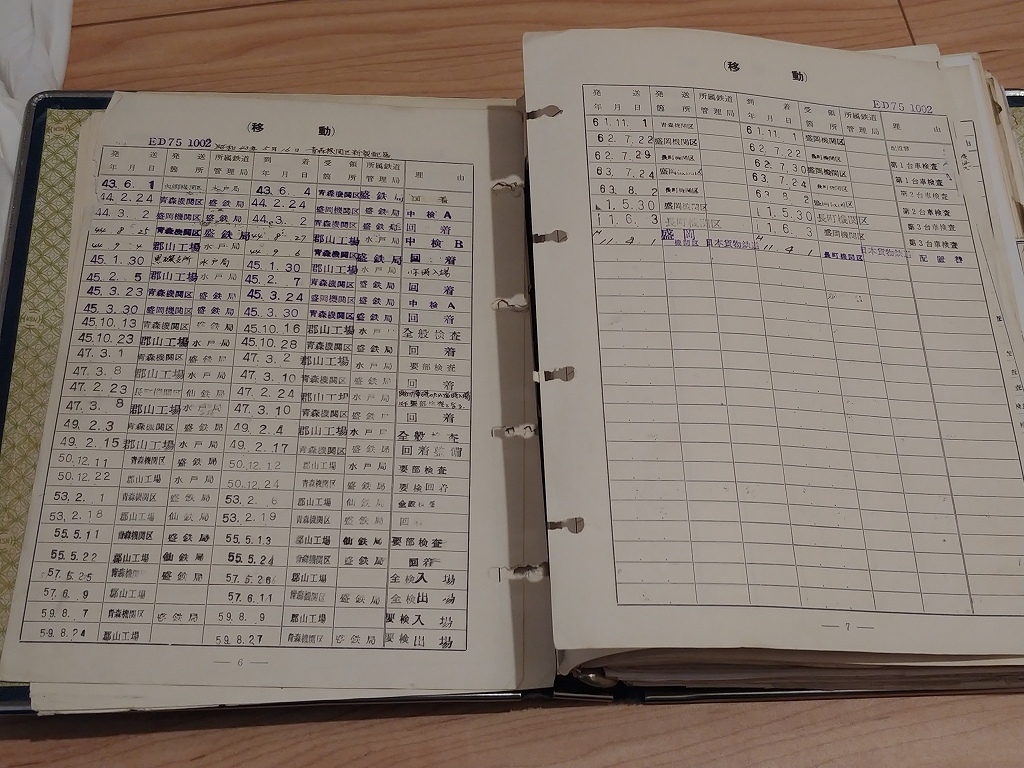 (移 動)
ED75 1002
発送 発送 所属鉄道 到着 受領 所属鉄道 理由
年月日 箇所 管理局 年月日 箇所 管理局
43.6.1 水戸局 43.6.4 青森機関区 盛鉄 回着
44.2.24 青森機関区 盛鉄局 44.2.24 盛岡機関区 盛鉄局 中検A
44.3.2 盛岡機関区 盛鉄局 44.3.2 青森機関区 盛鉄局 回着
44 8 25 青森機関区 盛鉄局 44 8 27 郡山工場 水戸局 中検B
44 9 4 郡山工場 水戸局 44 9 6 青森機関区 盛鉄局 回着
45.1.30 水戸局 45.1.30 郡山工場 水戸局
45.2.5 郡山工場 水戸局 45.2.7 青森機関区 盛鉄局 回着
45.3.23 青森機関区 盛鉄局 45.3.24 盛岡機関区 盛鉄局 中検A
45.3.30 盛岡機関区 盛鉄局 45.3.30 青森機関区 盛鉄局 回着
45.10.13 青森機関区 盛鉄局 45.10.16 郡山工場 水戸 全般検査
45.10.23 郡山工場 水戸局 45.10.28 青森機関区 盛鉄局 回着
47.3.1 青森機関区 盛鉄局 47.3.2 郡山工場 水戸局 要部検査
47.3.8 郡山工場 水戸局 47.3.10 青森機関区 盛鉄局 回着
47.2.23 仙鉄局 47.2.24 郡山工場 水戸局
47.3.8 郡山工場 水戸局 47.3.10 青森機関区 盛鉄 回着
49.2.3 青森機関区 盛鉄局 49.2.4 郡山工場 水戸 全般検査
49.2.15 郡山工場 水戸局 49.2.17 青森機関区 盛鉄局 回着整備
50.12.11 青森機関区 盛鉄局 50.12.12 郡山工場 水戸局 要部検査
50.12.22 郡山工場 水戸局 50.12.24 青森機関区 盛鉄局 要検回着
53.2.1 青森機関区 盛鉄局 53.2.6 郡山工場 仙鉄局
53.2.18 郡山工場 仙鉄局 53.2.19 青森機関区 盛鉄局 回
55.5.11 青森機関区 盛鉄局 55.5.13 郡山工場 仙鉄局 要部検査
55.5.22 郡山工場 仙鉄局 55.5.24 青森機関区 盛鉄局 回着
57.5.25 青森機関区 盛鉄局 57.5.26 郡山工場 全検入場
57.6.9 郡山工場 57.6.11 青森機関区 盛鉄局 全検出場
59.8.7 青森機関区 盛鉄局 59.8.9 郡山工場 要検入場
59.8.24 郡山工場 59.8.27 青森機関区 盛鉄局 要検出場
— 6 —
(移 動)
ED75 1002
発送 発送 所属鉄道 到着 受領 所属鉄道 理由
年月日 箇所 管理局 年月日 箇所 管理局
61.11.1 青森機関区 61.11.1 盛岡機関区
62.7.22 盛岡機関区 62.7.22 長町機関区 第1台車検査
62.7.29 長町機関区 62.7.30 盛岡機関区 第1台車検査
63.7.24 盛岡機関区 63.7.24 長町機関区 第2台車検査
63.8.2 長町機関区 63.8.2 盛岡機関区 第2台車検査
1.5.30 盛岡機関区 1.5.30 長町機関区 第3台車検査
1.6.3 長町機関区 1.6.3 盛岡機関区 第3台車検査
11 4 1 盛岡機関区 日本貨物鉄道 11 4 1 長町機関区 日本貨物鉄道 配置替
— 7 —